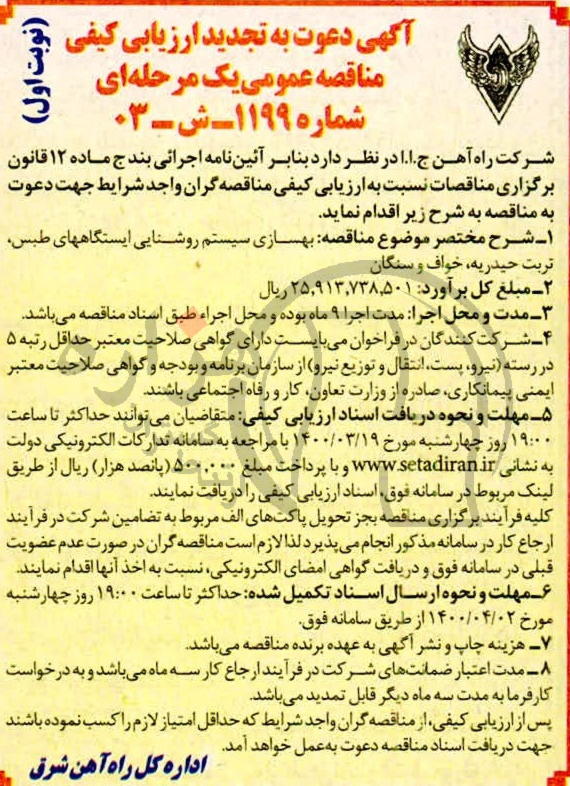 (نوبت اول)
آگهی دعوت به تجدید ارزیابی کیفی
مناقصه عمومی یک مرحله‌ای
شماره ۱۱۹۹ـ ش ـ ۰۳
شرکت راه آهن ج.ا.ا در نظر دارد بنابر آئین‌نامه اجرائی بند ج ماده ۱۲ قانون
برگزاری مناقصات نسبت به ارزیابی کیفی مناقصه‌گران واجد شرایط جهت دعوت
به مناقصه به شرح زیر اقدام نماید.
۱ـ شرح مختصر موضوع مناقصه: بهسازی سیستم روشنایی ایستگاههای طبس،
تربت حیدریه، خواف و سنگان
۲ـ مبلغ کل برآورد: ۲۵,۹۱۳,۷۳۸,۵۰۱ ریال
۳ـ مدت و محل اجرا: مدت اجرا ۹ ماه بوده و محل اجراء طبق اسناد مناقصه می‌باشد.
۴ـ شرکت کنندگان در فراخوان می‌بایست دارای گواهی صلاحیت معتبر حداقل رتبه ۵
در رسته (نیرو، پست، انتقال و توزیع نیرو) از سازمان برنامه و بودجه و گواهی صلاحیت معتبر
ایمنی پیمانکاری، صادره از وزارت تعاون، کار و رفاه اجتماعی باشند.
۵ـ مهلت و نحوه دریافت اسناد ارزیابی کیفی: متقاضیان می‌توانند حداکثر تا ساعت
۱۹:۰۰ روز چهارشنبه مورخ ۱۴۰۰/۰۳/۱۹ با مراجعه به سامانه تدارکات الکترونیکی دولت
به نشانی www.setadiran.ir و با پرداخت مبلغ ۵۰۰,۰۰۰ (پانصد هزار) ریال از طریق
لینک مربوط در سامانه فوق، اسناد ارزیابی کیفی را دریافت نمایند.
کلیه فرآیند برگزاری مناقصه بجز تحویل پاکت‌های الف مربوط به تضامین شرکت در فرآیند
ارجاع کار در سامانه مذکور انجام می‌پذیرد لذا لازم است مناقصه‌گران در صورت عدم عضویت
قبلی در سامانه فوق و دریافت گواهی امضای الکترونیکی، نسبت به اخذ آنها اقدام نمایند.
۶ـ مهلت و نحوه ارسال اسناد تکمیل شده: حداکثر تا ساعت ۱۹:۰۰ روز چهارشنبه
مورخ ۱۴۰۰/۰۴/۰۲ از طریق سامانه فوق.
۷ـ هزینه چاپ و نشر آگهی به عهده برنده مناقصه می‌باشد.
۸ـ مدت اعتبار ضمانت‌های شرکت در فرآیند ارجاع کار سه ماه می‌باشد و به درخواست
کارفرما به مدت سه ماه دیگر قابل تمدید می‌باشد.
پس از ارزیابی کیفی، از مناقصه‌گران واجد شرایط که حداقل امتیاز لازم را کسب نموده باشند
جهت دریافت اسناد مناقصه دعوت به‌عمل خواهد آمد.
اداره کل راه آهن شرق